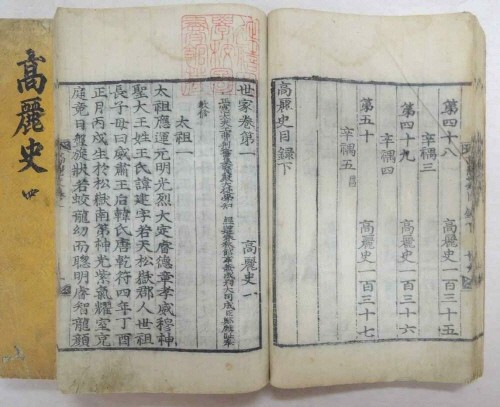 第四十八 高麗史一百三十五
辛禑三
第四十九 高麗史一百三十六
辛禑四
第五十 高麗史一百三十七
辛禑五 昌
高麗史目錄下
世家卷第一 高麗史一
敎修
太祖一
太祖應運元明光烈大定睿德章孝威穆神
聖大王姓王氏諱建字若天松嶽郡人世祖
長子母曰威肅王后韓氏唐乾符四年丁酉
正月丙戌生於松嶽南第神光紫氣耀室充
庭竟日盤旋狀若蛟龍幼而聰明睿智龍顏
高麗史 四